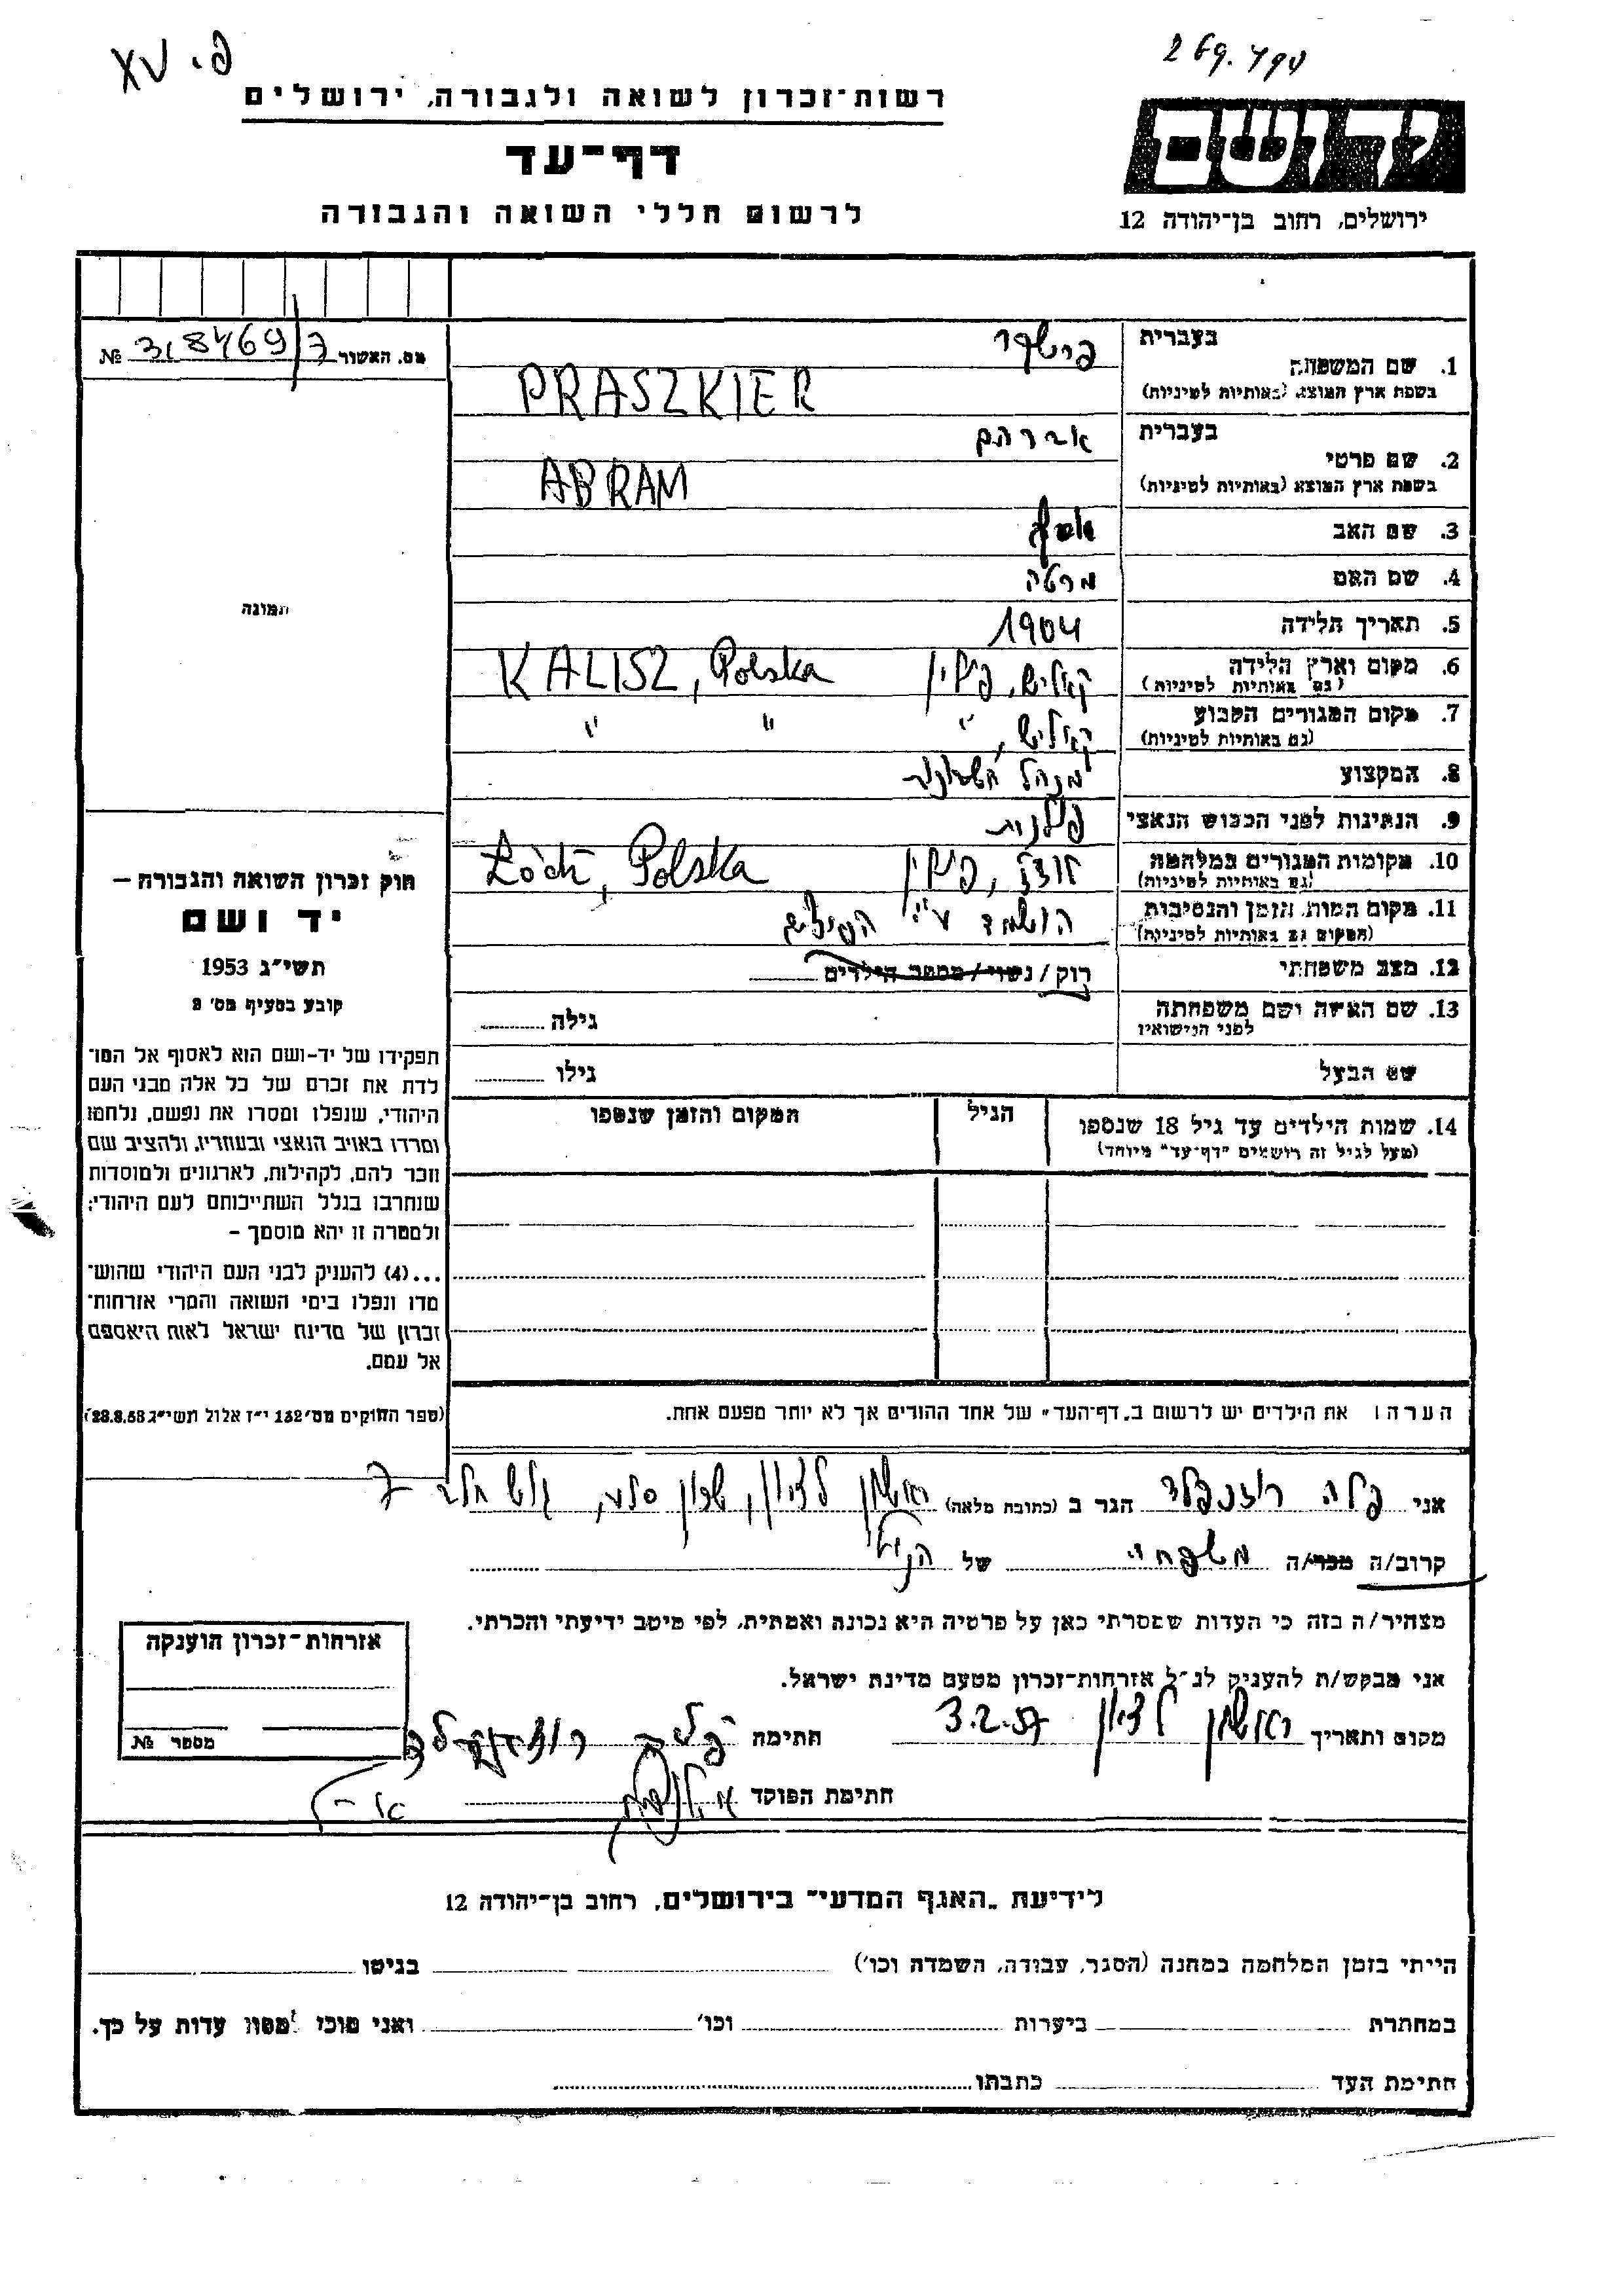 רשות־זכרון לשואה ולגבורה, ירושלים
דף־עד
לרשום חללי השואה והגבורה
יד ושם
ירושלים, רחוב בן־יהודה 12
מס. האשור № 318469/7
בעברית פרשקר
1. שם המשפחה
בשפת ארץ המוצא (באותיות לטיניות) PRASZKIER
בעברית אברהם
2. שם פרטי
בשפת ארץ המוצא (באותיות לטיניות) ABRAM
3. שם האב
4. שם האם
5. תאריך הלידה 1904
6. מקום וארץ הלידה קאליש, פולין KALISZ, Polska
(גם באותיות לטיניות)
7. מקום המגורים הקבוע קאליש, " " "
(גם באותיות לטיניות)
8. המקצוע מנהל חשבונות
9. הנתינות לפני הכבוש הנאצי פולנית
10. מקומות המגורים במלחמה לודז, פולין Łódź, Polska
(גם באותיות לטיניות)
11. מקום המות, הזמן והנסיבות הושמד ע"י
(המקום גם באותיות לטיניות)
12. מצב משפחתי רוק / נשוי / מספר הילדים
13. שם האשה ושם משפחתה גילה
לפני הנישואין
שם הבעל גילו
14. שמות הילדים עד גיל 18 שנספו הגיל המקום והזמן שנספו
(מעל לגיל זה רושמים "דף־עד" מיוחד)
תמונה
חוק זכרון השואה והגבורה —
יד ושם
תשי״ג 1953
קובע בסעיף מס׳ 2
תפקידו של יד-ושם הוא לאסוף אל המו־
לדת את זכרם של כל אלה מבני העם
היהודי, שנפלו ומסרו את נפשם, נלחמו
ומרדו באויב הנאצי ובעוזריו, ולהציב שם
וזכר להם, לקהילות, לארגונים ולמוסדות
שנחרבו בגלל השתייכותם לעם היהודי;
ולמטרה זו יהא מוסמך —
...(4) להעניק לבני העם היהודי שהוש־
מדו ונפלו בימי השואה והמרי אזרחות־
זכרון של מדינת ישראל לאות היאספם
אל עמם.
(ספר החוקים מס׳ 132 י״ז אלול תשי״ג 28.8.53)
הערה: את הילדים יש לרשום ב„דף־העד" של אחד ההורים אך לא יותר מפעם אחת.
אני הגר ב (כתובת מלאה) ראשון לציון, שכון סלע, גוש חלב 7
קרוב/ה מכר/ה משפחה של הנ"ל
מצהיר/ה בזה כי העדות שמסרתי כאן על פרטיה היא נכונה ואמתית, לפי מיטב ידיעתי והכרתי.
אני מבקש/ת להעניק לנ״ל אזרחות־זכרון מטעם מדינת ישראל.
מקום ותאריך ראשון לציון 3.2.57 חתימה
חתימת הפוקד
אזרחות־זכרון הוענקה
מספר №
לידיעת „האגף המדעי" בירושלים, רחוב בן־יהודה 12
הייתי בזמן המלחמה במחנה (הסגר, עבודה, השמדה וכו׳) בגיטו
במחתרת ביערות וכו׳ ואני מוכן למסור עדות על כך.
חתימת העד כתבתו